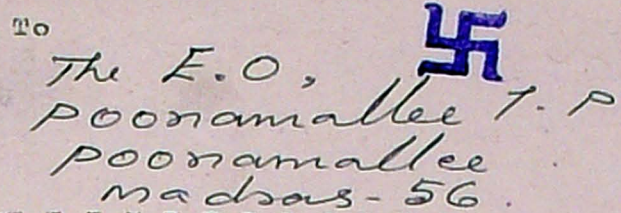 To
The E.O,
Poonamallee T.P
Poonamallee
Madras-56.